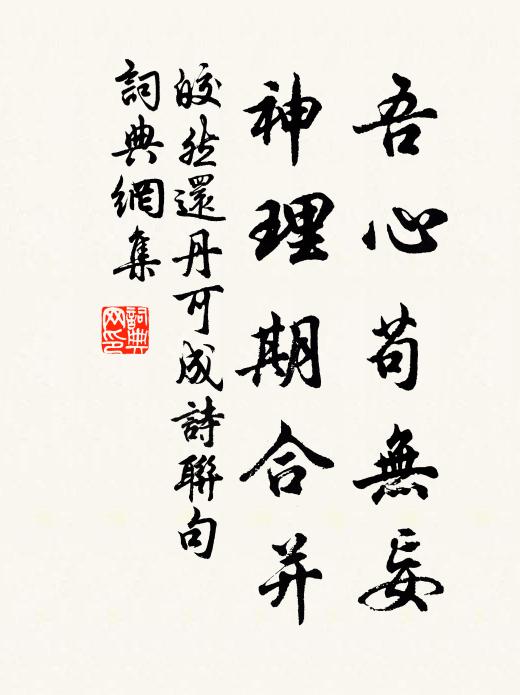 吾心苟無妄
神理期合并
皎然還丹可成詩聯句
詞典網集
詞典网印